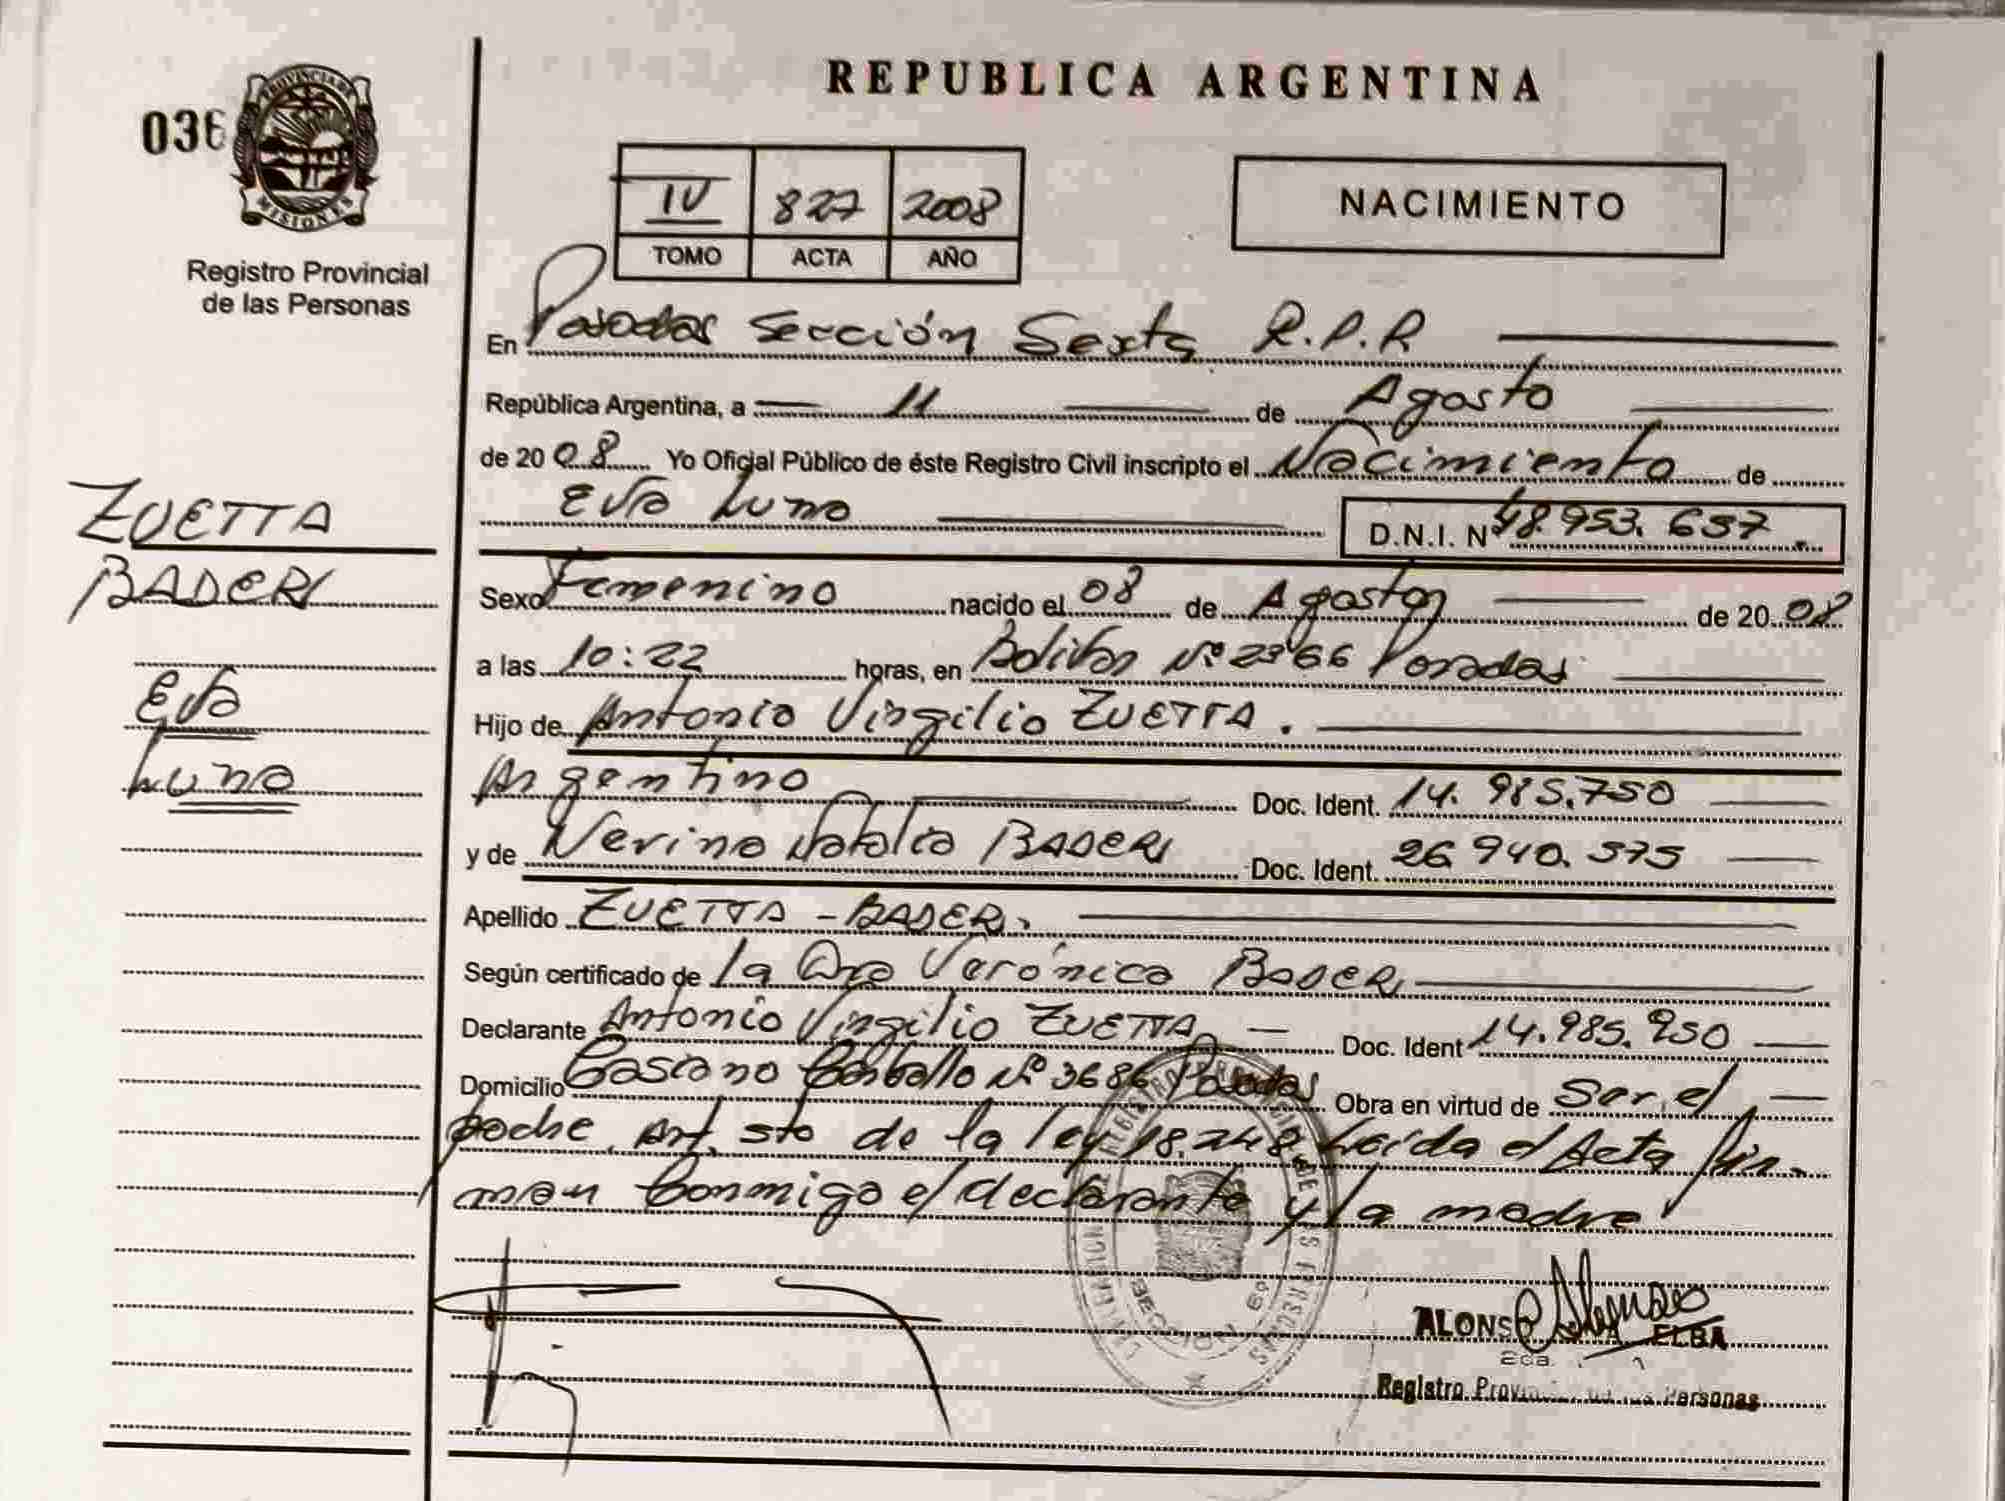 036
PROVINCIA DE
MISIONES
Registro Provincial
de las Personas
REPUBLICA ARGENTINA
IV 827 2008
TOMO ACTA AÑO
NACIMIENTO
En Posadas Sección Sexta R.P.R
República Argentina, a 11 de Agosto
de 2008 Yo Oficial Público de éste Registro Civil inscripto el Nacimiento de
Eva Luna D.N.I. Nº 48.953.657.
ZUETTA
BADERI
Eva
Luna
Sexo Femenino nacido el 08 de Agosto de 2008
a las 10:22 horas, en Bolivar Nº 2366 Posadas
Hijo de Antonio Virgilio ZUETTA.
Argentino Doc. Ident. 14.985.750
y de Nerina Natalia BADERI Doc. Ident. 26.940.575
Apellido ZUETTA - BADERI.
Según certificado de la Dra Verónica BADERI
Declarante Antonio Virgilio ZUETTA Doc. Ident 14.985.950
Domicilio Casiano Carballo Nº 3686 Posadas Obra en virtud de Ser el
padre. Art. 5to de la ley 18.248. Leída el Acta fir-
man Conmigo el declarante y la madre
SECCION 6º
ALONSO ELBA
Registro Provincial de las Personas